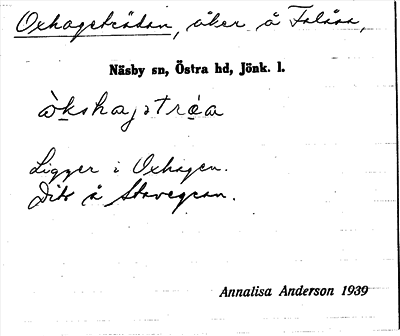 Oxhagaträdan, åker å Falåsa,
Näsby sn, Östra hd, Jönk. l.
Ligger i Oxhagen.
Dito å Stovegran.
Annalisa Anderson 1939